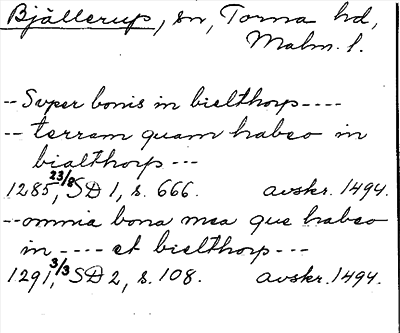 Bjällerup, sn, Torna hd,
Malm. l.
-- Super bonis in bielthorp ----
-- terram quam habeo in
bialthorp ---
1285 23/8, SD 1, s. 666. avskr. 1494.
-- omnia bona mea que habeo
in ---- et bielthorp ---
1291, 3/3 SD 2, s. 108. avskr. 1494.